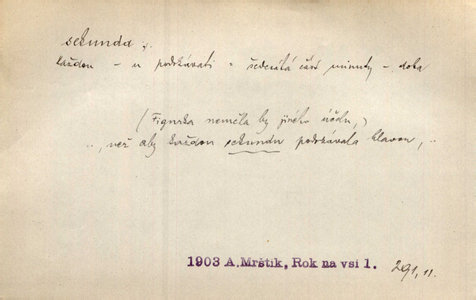 sekunda,
každou – u podrkávati = šedesátá část minuty – doba
(Figurka neměla by jiného účelu,)
.., než aby každou sekundu podrkávala hlavou, ..
1903 A. Mrštík, Rok na vsi 1. 291, 11.